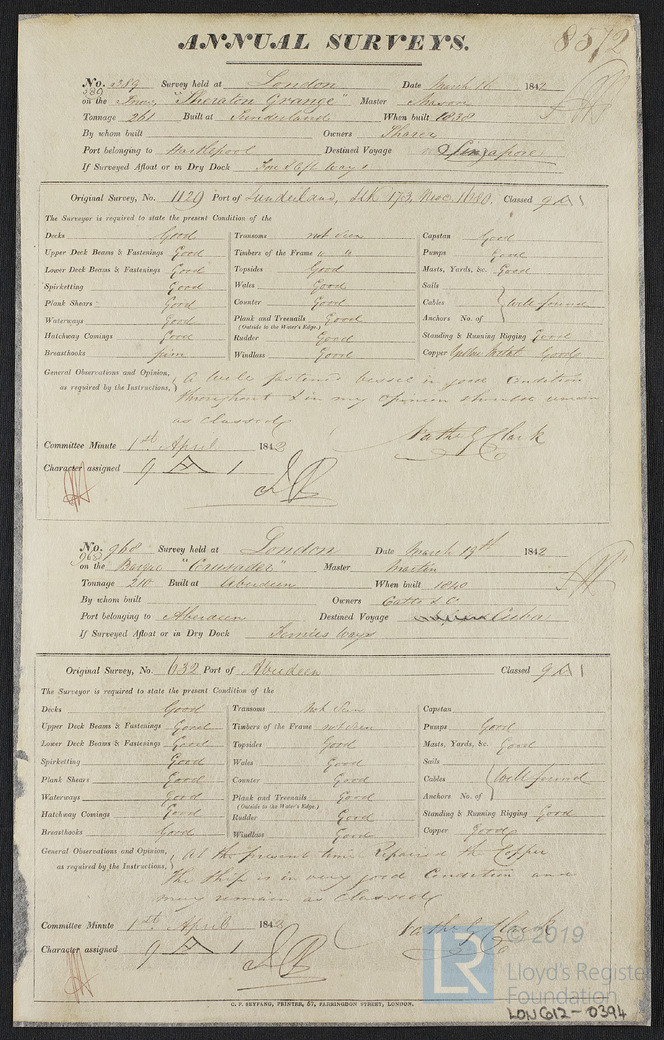 ANNUAL SURVEYS.
No. 389 Survey held at London Date March 16 1842
389
on the "Sheraton Grange" Master
Tonnage 261 Built at Sunderland When built 1838
By whom built Owners Sharer
Port belonging to Hartlepool Destined Voyage Singapore
If Surveyed Afloat or in Dry Dock
Original Survey, No. 1129 Port of Sunderland, Classed 9 A 1
The Surveyor is required to state the present Condition of the
Decks Good Transoms not seen Capstan Good
Upper Deck Beams & Fastenings Good Timbers of the Frame " " Pumps Good
Lower Deck Beams & Fastenings Good Topsides Good Masts, Yards, &c. Good
Spirketting Good Wales Good Sails
Plank Shears Good Counter Good Cables Well found
Waterways Good Plank and Treenails Good Anchors No. of
(Outside to the Water's Edge.)
Hatchway Comings Good Rudder Good Standing & Running Rigging Good
Breasthooks firm Windlass Good Copper Yellow Metal Good
General Observations and Opinion, A well fastened vessel in good condition
as required by the Instructions, throughout & in my opinion should remain
as classed
Nathl G Clark
Committee Minute 1st April 1842
Character assigned 9 A 1
No. 968 Survey held at London Date March 19th 1842
968
on the Barque "Crusader" Master Martin
Tonnage 210 Built at Aberdeen When built 1840
By whom built Owners Catto & Co
Port belonging to Aberdeen Destined Voyage
If Surveyed Afloat or in Dry Dock Ways
Original Survey, No. 632 Port of Aberdeen Classed 9 A 1
The Surveyor is required to state the present Condition of the
Decks Good Transoms not seen Capstan
Upper Deck Beams & Fastenings Good Timbers of the Frame not seen Pumps Good
Lower Deck Beams & Fastenings Good Topsides Good Masts, Yards, &c. Good
Spirketting Good Wales Good Sails
Plank Shears Good Counter Good Cables Well found
Waterways Good Plank and Treenails Good Anchors No. of
(Outside to the Water's Edge.)
Hatchway Comings Good Rudder Good Standing & Running Rigging Good
Breasthooks Good Windlass Good Copper Good
General Observations and Opinion, At the present time Repaired the Copper
as required by the Instructions, The Ship is in very good Condition and
may remain as classed
Nathl G Clark
Committee Minute 1st April 1842
Character assigned 9 A 1
C. F. SEYFANG, PRINTER, 57, FARRINGDON STREET, LONDON.
LR © 2019
Lloyd's Register
Foundation
LON612-0394